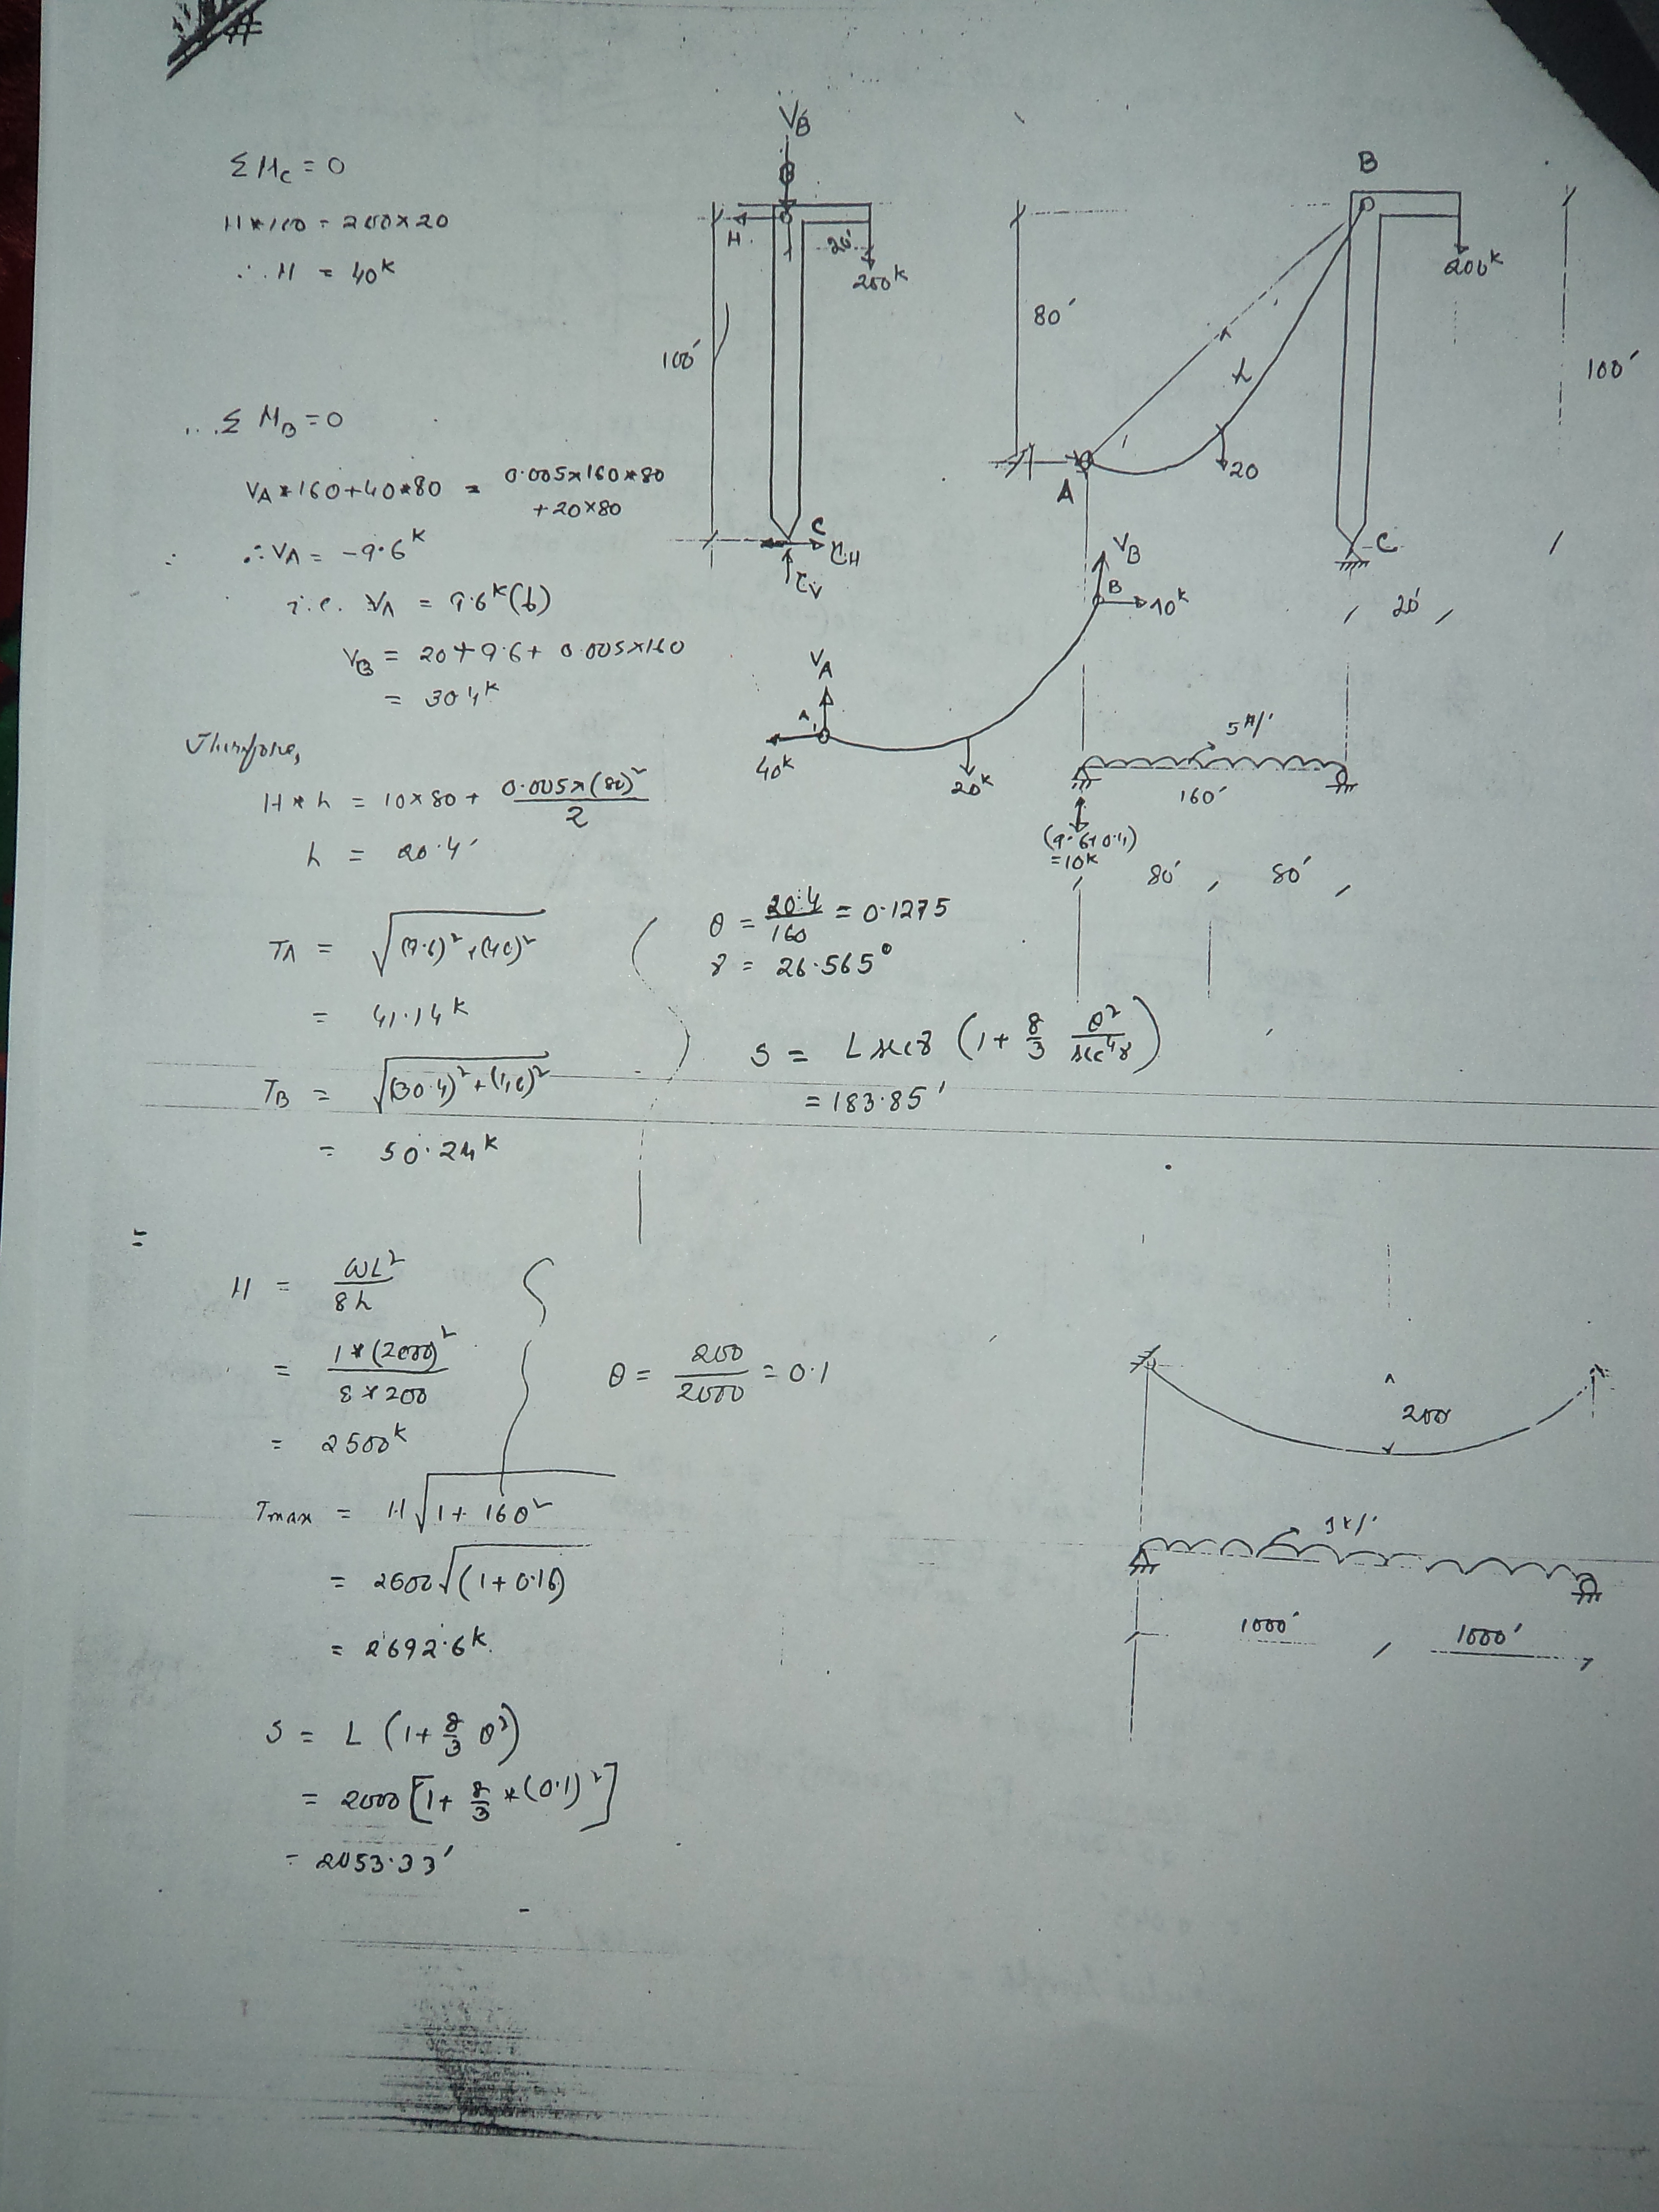 #
ΣM_C = 0
H*100 = 200×20
∴ H = 40^K
Σ M_B = 0
V_A*160+40*80 = 0.005×160*80 + 20×80
∴ V_A = -9.6^K
i.e. V_A = 9.6^K (↓)
V_B = 20+9.6+0.005×160
= 30.4^K
Therefore,
H*h = 10×80 + 0.005×(80)²/2
h = 20.4'
T_A = √((9.6)²+(40)²)
= 41.14^K
T_B = √((30.4)²+(40)²)
= 50.24^K
θ = 20.4/160 = 0.1275
γ = 26.565°
S = L sec γ (1+ 8/3 θ²/sec⁴γ)
= 183.85'
V_B
B
H
20'
200^K
100'
C
C_H
C_V
B
80'
200^K
100'
h
A
20
C
20'
V_B
B
40^K
V_A
A
40^K
20^K
5#/'
160'
(9.6+0.4)
=10K
80', 80',
=
H = ωL²/8h
= 1*(2000)²/8*200
= 2500^K
θ = 200/2000 = 0.1
T_max = H√(1+16θ²)
= 2500√(1+0.16)
= 2692.6^K
S = L (1+ 8/3 θ²)
= 2000 [1+ 8/3 *(0.1)²]
= 2053.33'
200
1K/'
1000', 1000'